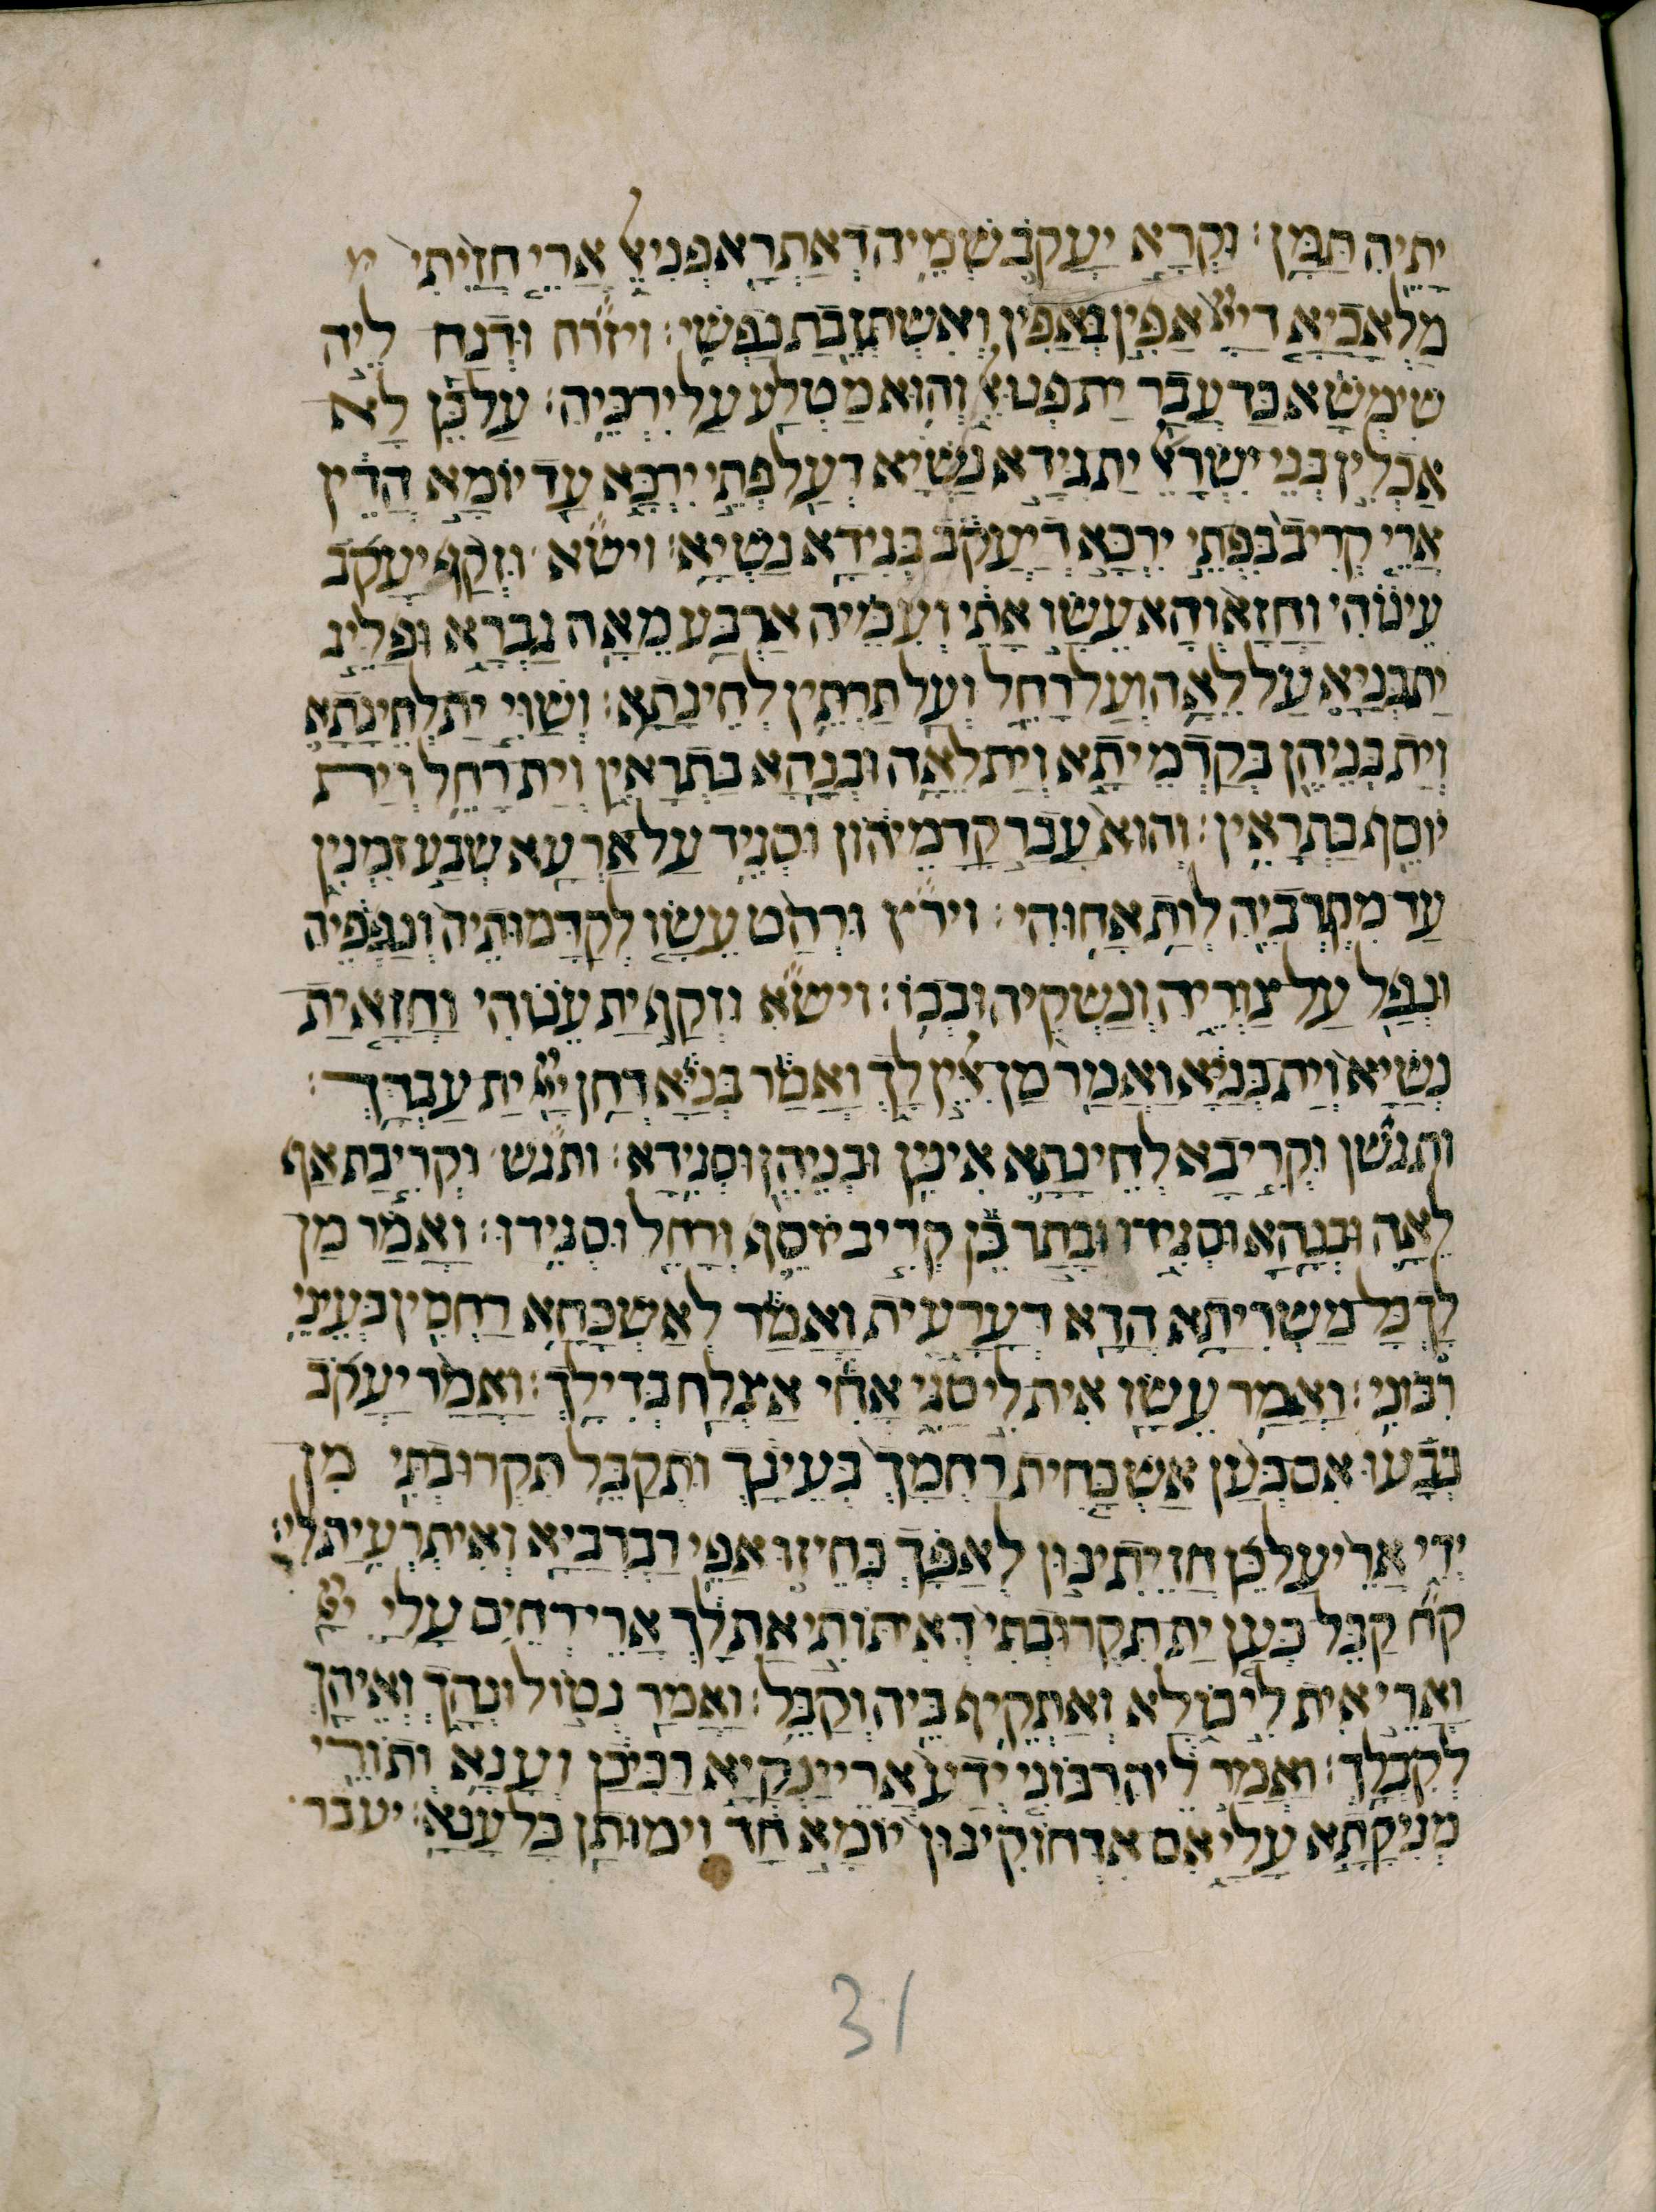 יָתֵיהּ תַּמָּן׃ וּקְרָא יַעֲקֹב שְׁמֵיהּ דְּאַתְרָא פְּנִיאֵל אֲרֵי חֲזֵיתִי מ
מַלְאֲכַיָּא דַייָ אַפִּין בְּאַפִּין וְאִשְׁתֵּזַבַת נַפְשִׁי׃ ויזרח וּדְנַח לֵיהּ
שִׁימְשָׁא כַּד עֲבַר יָת פְּנוּאֵל וְהוּא מַטְלַע עַל יִרְכֵּיהּ׃ עַל כֵּן לָא
אָכְלִין בְּנֵי יִשְׂרָאֵל יָת גִּידָא נַשְׁיָא דְּעַל פְּתֵי יִרְכָּא עַד יוֹמָא הָדֵין
אֲרֵי קְרִיב בִּפְתֵי יִרְכָּא דְּיַעֲקֹב בְּגִידָא נַשְׁיָא׃ וישא וּזְקַף יַעֲקֹב
עֵינוֹהִי וַחֲזָא וְהָא עֵשָׂו אָתֵי וְעִמֵּיהּ אַרְבַּע מְאָה גַּבְרָא וּפַלֵּיג
יָת בְּנַיָּא עַל לֵאָה וְעַל רָחֵל וְעַל תַּרְתֵּין לְחֵינָתָא׃ וְשַׁוִּי יָת לְחֵינָתָא
וְיָת בְּנֵיהֶן בְּקַדְמֵיתָא וְיָת לֵאָה וּבְנָהָא בַּתְרָאִין וְיָת רָחֵל וְיָת
יוֹסֵף בַּתְרָאִין׃ וְהוּא עֲבַר קֳדָמֵיהוֹן וּסְגֵיד עַל אַרְעָא שְׁבַע זִמְנִין
עַד מִקְרְבֵיהּ לְוָת אֲחוּהִי׃ וירץ וּרְהַט עֵשָׂו לְקַדָּמוּתֵיהּ וְגַפְּפֵיהּ
וּנְפַל עַל צַוְרֵיהּ וְנַשְּׁקֵיהּ וּבְכוֹ׃ וישא וּזְקַף יָת עֵינוֹהִי וַחֲזָא יָת
נְשַׁיָּא וְיָת בְּנַיָּא וַאֲמַר מַן אִלֵּין לָךְ וַאֲמַר בְּנַיָּא דְּחַן יְיָ יָת עַבְדָּךְ׃
ותגשן וּקְרִיבָא לְחֵינָתָא אִינִּין וּבְנֵיהֶן וּסְגִידָא׃ ותגש וּקְרִיבַת אַף
לֵאָה וּבְנָהָא וּסְגִידוּ וּבָתַר כֵּן קְרִיב יוֹסֵף וְרָחֵל וּסְגִידוּ׃ וַאֲמַר מַן
לָךְ כָּל מַשְׁרִיתָא הָדָא דְּעָרַעִית וַאֲמַר לְאַשְׁכָּחָא רַחֲמִין בְּעֵינֵי
רִבּוֹנִי׃ וַאֲמַר עֵשָׂו אִית לִי סַגִּי אֲחִי אַצְלַח בְּדִילָךְ׃ וַאֲמַר יַעֲקֹב
בְּבָעוּ אִם כְּעַן אַשְׁכָּחִית רַחְמָךְ בְּעֵינָךְ וּתְקַבֵּל תִּקְרוּבְתִּי מִן
יְדִי אֲרֵי עַל כֵּן חֲזֵיתִינּוּן לְאַפָּךְ כְּחֵיזוּ אַפֵּי רַבְרְבַיָּא וְאִיתְרְעִית לִי׃
קח קַבֵּל כְּעַן יָת תִּקְרוּבְתִּי דְּאִיתוֹתִיאַת לָךְ אֲרֵי רְחֵים עֲלַי יְיָ
וַאֲרֵי אִית לִי כּוֹלָּא וְאַתְקֵיף בֵּיהּ וְקַבֵּל׃ וַאֲמַר נִטּוֹל וּנְהָךְ וְאֵיהָךְ
לְקִבְלָךְ׃ וַאֲמַר לֵיהּ רִבּוֹנִי יָדַע אֲרֵי יָנְקַיָּא רַכִּיכִן וְעָנָא וְתוֹרֵי
מֵנִיקָתָא עֲלַי אִם אִדְחוֹקִינּוּן יוֹמָא חַד וִימוּתָן כָּל עָנָא׃ יעבר
31